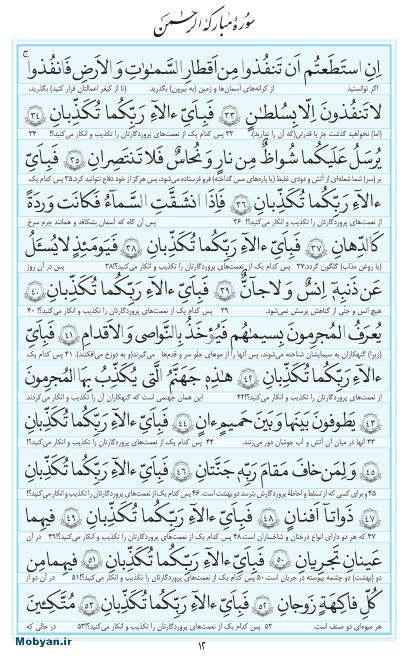 سورهٔ مبارکهٔ الرحمن
اِنِ استَطَعتُم اَن تَنفُذوا مِن اَقطارِ السَّمٰوٰتِ وَالاَرضِ فَانفُذوا ۚ
اگر توانستید از کرانه‌های آسمان‌ها و زمین (به بیرون) بگذرید (تا از کیفر اعمالتان فرار کنید) بگذرید،
لا تَنفُذونَ اِلّا بِسُلطانٍ ۳۳ فَبِاَیِّ ءالآءِ رَبِّکُما تُکَذِّبانِ ۳۴
(اما) نخواهید گذشت جز با قدرتی(که آن را ندارید). ۳۳ پس کدام یک از نعمت‌های پروردگارتان را تکذیب و انکار می‌کنید؟! ۳۴
یُرسَلُ عَلَیکُما شُواظٌ مِن نارٍ وَ نُحاسٌ فَلا تَنتَصِرانِ ۳۵ فَبِاَیِّ
بر (سر) شما شعله‌ای از آتش و دودی غلیظ (یا پاره‌های مس گداخته) فرو فرستاده می‌شود، پس هرگز از خود دفاع نتوانید کرد. ۳۵ پس کدام یک
ءالآءِ رَبِّکُما تُکَذِّبانِ ۳۶ فَاِذَا انشَقَّتِ السَّمآءُ فَکانَت وَردَةً
از نعمت‌های پروردگارتان را تکذیب و انکار می‌کنید؟! ۳۶ پس آن گاه که آسمان بشکافد و همانند چرم سرخ
کَالدِّهانِ ۳۷ فَبِاَیِّ ءالآءِ رَبِّکُما تُکَذِّبانِ ۳۸ فَیَومَئِذٍ لا یُسئَلُ
(یا روغن مذاب) گلگون گردد؛ ۳۷ پس کدام یک از نعمت‌های پروردگارتان را تکذیب و انکار می‌کنید؟! ۳۸ پس در آن روز
عَن ذَنبِهٖٓ اِنسٌ وَ لا جآنٌّ ۳۹ فَبِاَیِّ ءالآءِ رَبِّکُما تُکَذِّبانِ ۴۰
هیچ انس و جنی از گناهش پرسش نمی‌شود. ۳۹ پس کدام یک از نعمت‌های پروردگارتان را تکذیب و انکار می‌کنید؟! ۴۰
یُعرَفُ المُجرِمونَ بِسیمٰهُم فَیُؤخَذُ بِالنَّواصی وَ الاَقدامِ ۴۱ فَبِاَیِّ
(زیرا) گنهکاران به سیمایشان شناخته می‌شوند، پس آنها را از موهای جلو سر و قدم‌ها می‌گیرند(و به دوزخ می‌افکنند). ۴۱ پس کدام یک
ءالآءِ رَبِّکُما تُکَذِّبانِ ۴۲ هٰذِهٖ جَهَنَّمُ الَّتی یُکَذِّبُ بِهَا المُجرِمونَ
از نعمت‌های پروردگارتان را تکذیب و انکار می‌کنید؟! ۴۲ این همان جهنمی است که گنهکاران آن را تکذیب و انکار می‌کردند.
۴۳ یَطوفونَ بَینَها وَ بَینَ حَمیمٍ ءانٍ ۴۴ فَبِاَیِّ ءالآءِ رَبِّکُما تُکَذِّبانِ
۴۳ آنها در میان آن آتش و آب جوشان دور می‌زنند. ۴۴ پس کدام یک از نعمت‌های پروردگارتان را تکذیب و انکار می‌کنید؟!
۴۵ وَ لِمَن خافَ مَقامَ رَبِّهٖ جَنَّتانِ ۴۶ فَبِاَیِّ ءالآءِ رَبِّکُما تُکَذِّبانِ
۴۵ و برای کسی که از تسلط و احاطهٔ پروردگارش بترسد دو بهشت است. ۴۶ پس کدام یک از نعمت‌های پروردگارتان را تکذیب و انکار می‌کنید؟!
۴۷ ذَواتآ اَفنانٍ ۴۸ فَبِاَیِّ ءالآءِ رَبِّکُما تُکَذِّبانِ ۴۹ فیهِما
۴۷ که هر دو دارای انواع درختان و شاخساران است. ۴۸ پس کدام یک از نعمت‌های پروردگارتان را تکذیب و انکار می‌کنید؟! ۴۹ در آن
عَینانِ تَجرِیانِ ۵۰ فَبِاَیِّ ءالآءِ رَبِّکُما تُکَذِّبانِ ۵۱ فیهِما مِن
دو (بهشت) دو چشمه پیوسته در جریان است. ۵۰ پس کدام یک از نعمت‌های پروردگارتان را تکذیب و انکار می‌کنید؟! ۵۱ در آن دو از
کُلِّ فاکِهَةٍ زَوجانِ ۵۲ فَبِاَیِّ ءالآءِ رَبِّکُما تُکَذِّبانِ ۵۳ مُتَّکِـینَ
هر میوه‌ای دو صنف است. ۵۲ پس کدام یک از نعمت‌های پروردگارتان را تکذیب و انکار می‌کنید؟! ۵۳ در حالی که
۱۲
Mobyan.ir